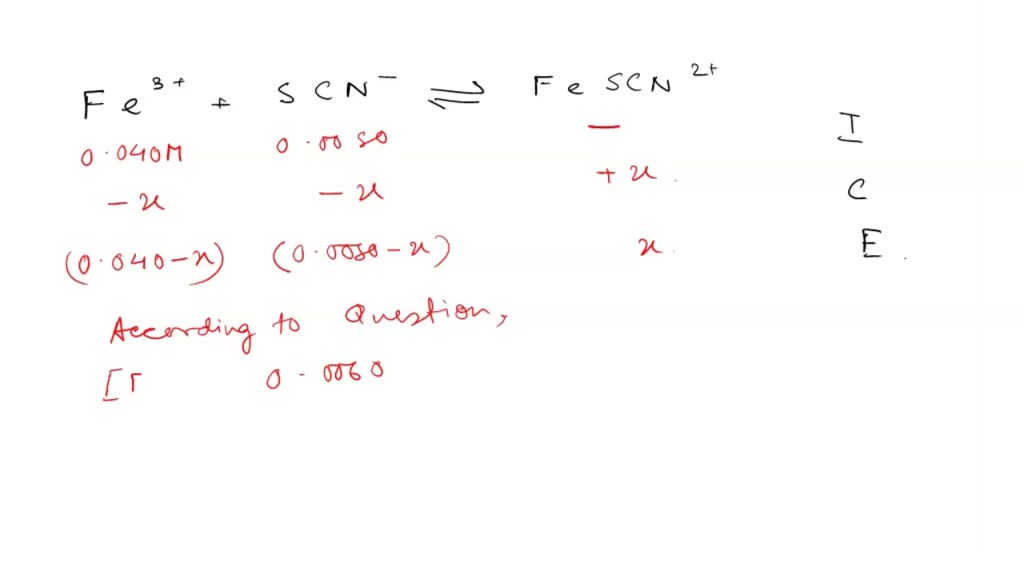 Fe³⁺ + SCN⁻ ⇌ FeSCN²⁺
0.040M 0.0050 — I
-x -x +x. C
(0.040-x) (0.0050-x) x. E.
According to Question,
[F 0.0060